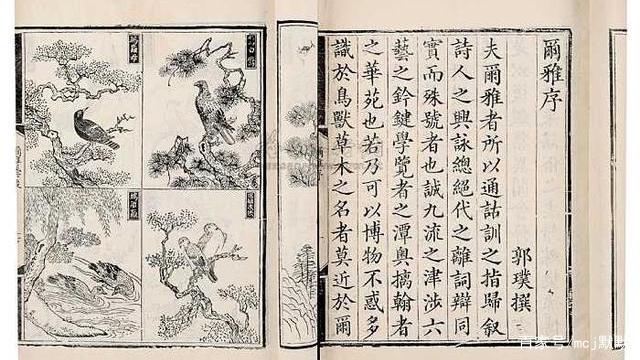 爾雅序
郭璞撰
夫爾雅者所以通詁訓之指歸叙
詩人之興詠總絕代之離詞辯同
實而殊號者也誠九流之津涉六
藝之鈐鍵學覽者之潭奥摛翰者
之華苑也若乃可以博物不惑多
識於鳥獸草木之名者莫近於爾
百家号/mcj默默